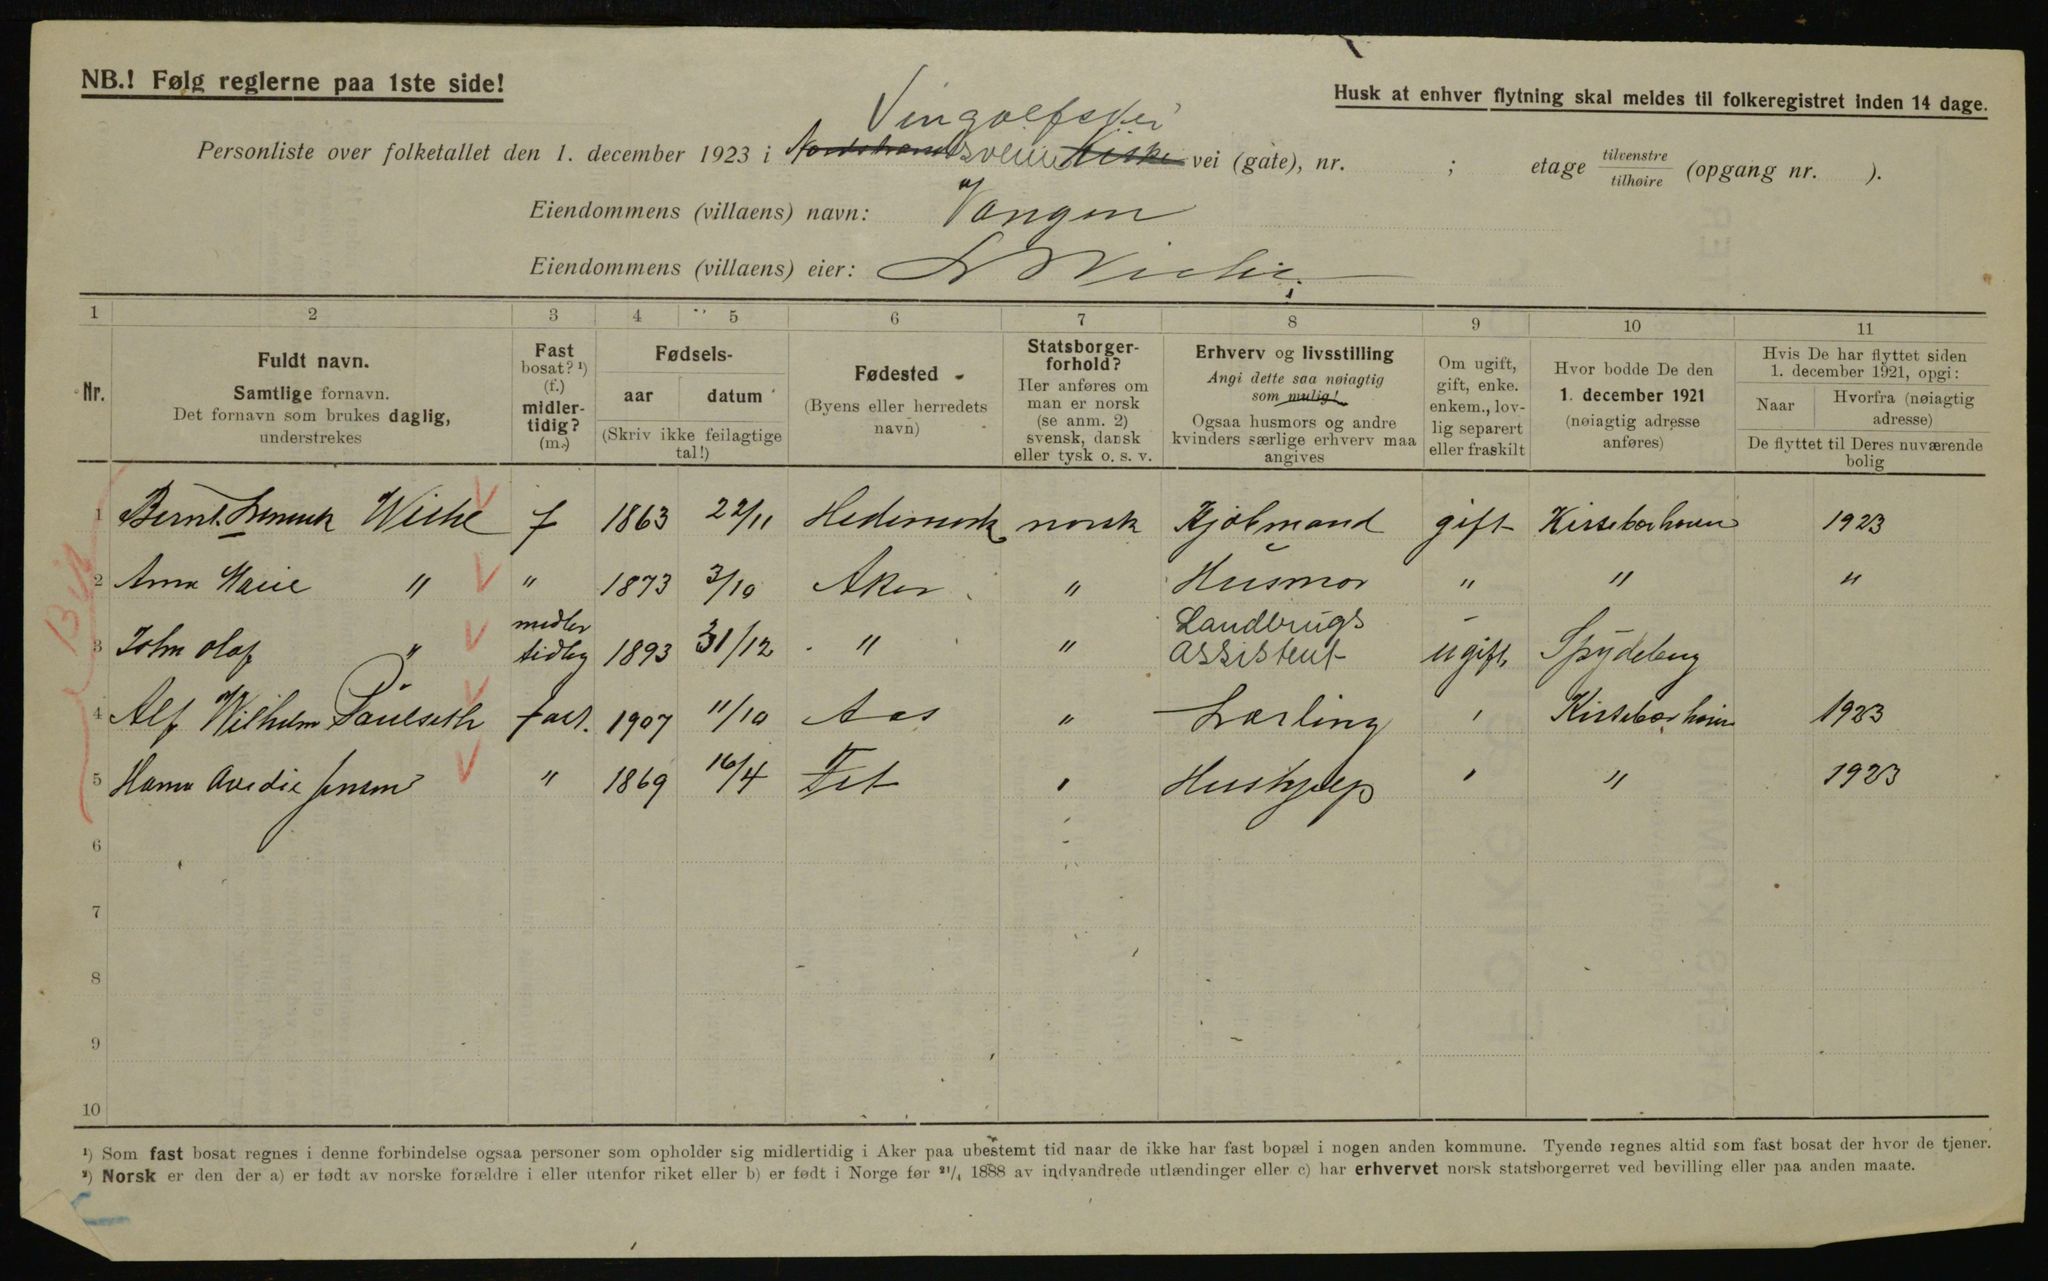 NB.! Følg reglerne paa 1ste side!
Husk at enhver flytning skal meldes til folkeregistret inden 14 dage.
Vingolfsvei
Personliste over folketallet den 1. december 1923 i vei (gate), nr. ; etage tilvenstre tilhøire (opgang nr. ).
Eiendommens (villaens) navn: Vangen
Eiendommens (villaens) eier:
1 2 3 4 5 6 7 8 9 10 11
Nr.
Fuldt navn.
Samtlige fornavn.
Det fornavn som brukes daglig,
understrekes
Fast
bosat? ¹)
(f.)
midler-
tidig?
(m.)
Fødsels-
aar datum
(Skriv ikke feilagtige
tal!)
Fødested
(Byens eller herredets
navn)
Statsborger-
forhold?
Her anføres om
man er norsk
(se anm. 2)
svensk, dansk
eller tysk o. s. v.
Erhverv og livsstilling
Angi dette saa nøiagtig
som mulig!
Ogsaa husmors og andre
kvinders særlige erhverv maa
angives
Om ugift,
gift, enke.
enkem., lov-
lig separert
eller fraskilt
Hvor bodde De den
1. december 1921
(nøiagtig adresse
anføres)
Hvis De har flyttet siden
1. december 1921, opgi:
Naar
Hvorfra (nøiagtig
adresse)
De flyttet til Deres nuværende
bolig
1 Bernt f 1863 22/11 Hedemark norsk Kjøbmand gift 1923
2 Anna Marie " " 1873 3/10 Aker " Husmor " " "
3 John Olaf " midler tidig 1893 31/12 " " Landbrugs assistent ugift Spydeberg
4 Alf Wilhelm fast. 1907 11/10 Aas " Lærling ' 1923
5 Jensen " 1869 16/4 Fet " Hushjælp ' " 1923
6
7
8
9
10
¹) Som fast bosat regnes i denne forbindelse ogsaa personer som opholder sig midlertidig i Aker paa ubestemt tid naar de ikke har fast bopæl i nogen anden kommune. Tyende regnes altid som fast bosat der hvor de tjener.
²) Norsk er den der a) er født av norske forældre i eller utenfor riket eller b) er født i Norge før ²¹/₄ 1888 av indvandrede utlændinger eller c) har erhvervet norsk statsborgerret ved bevilling eller paa anden maate.